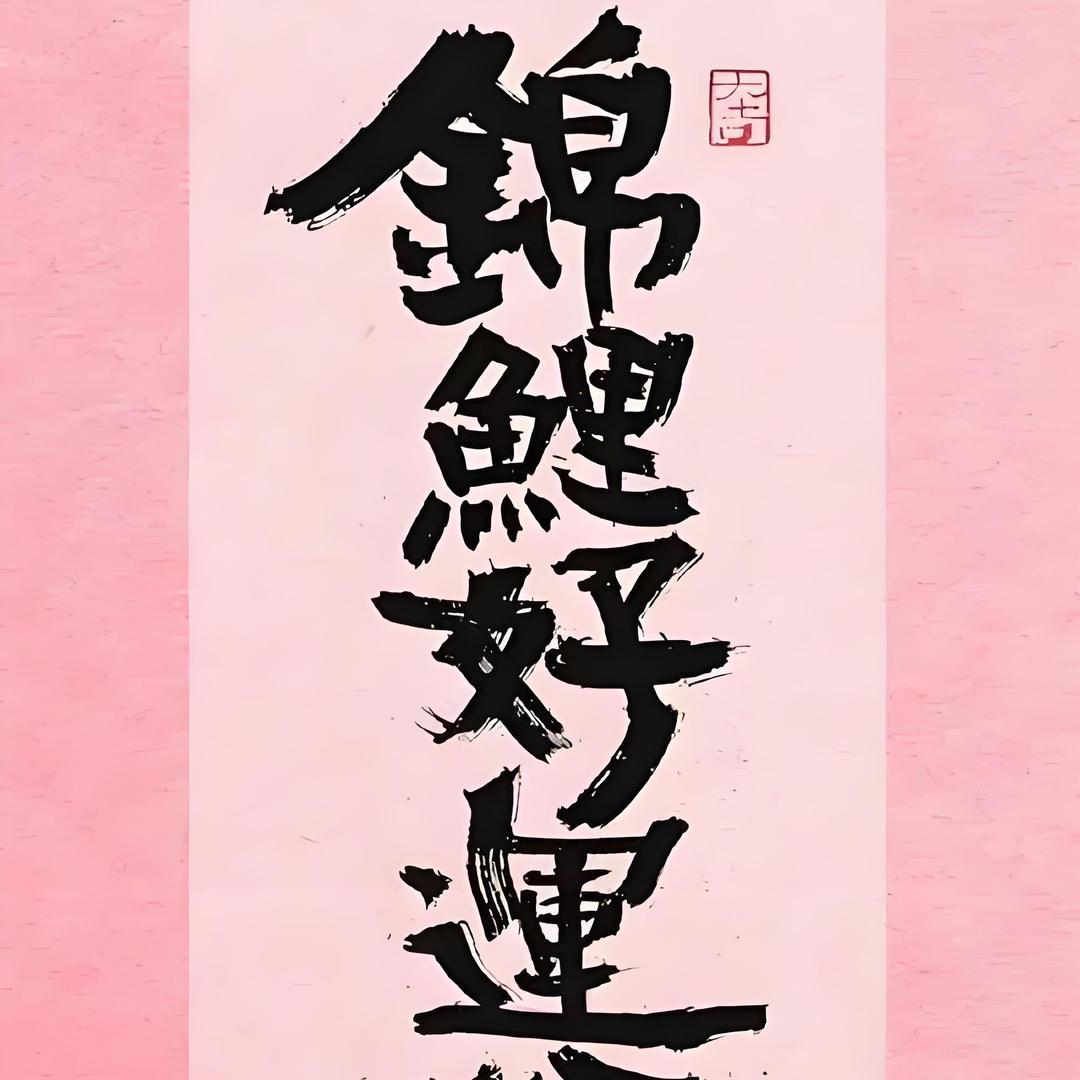 錦鯉好運